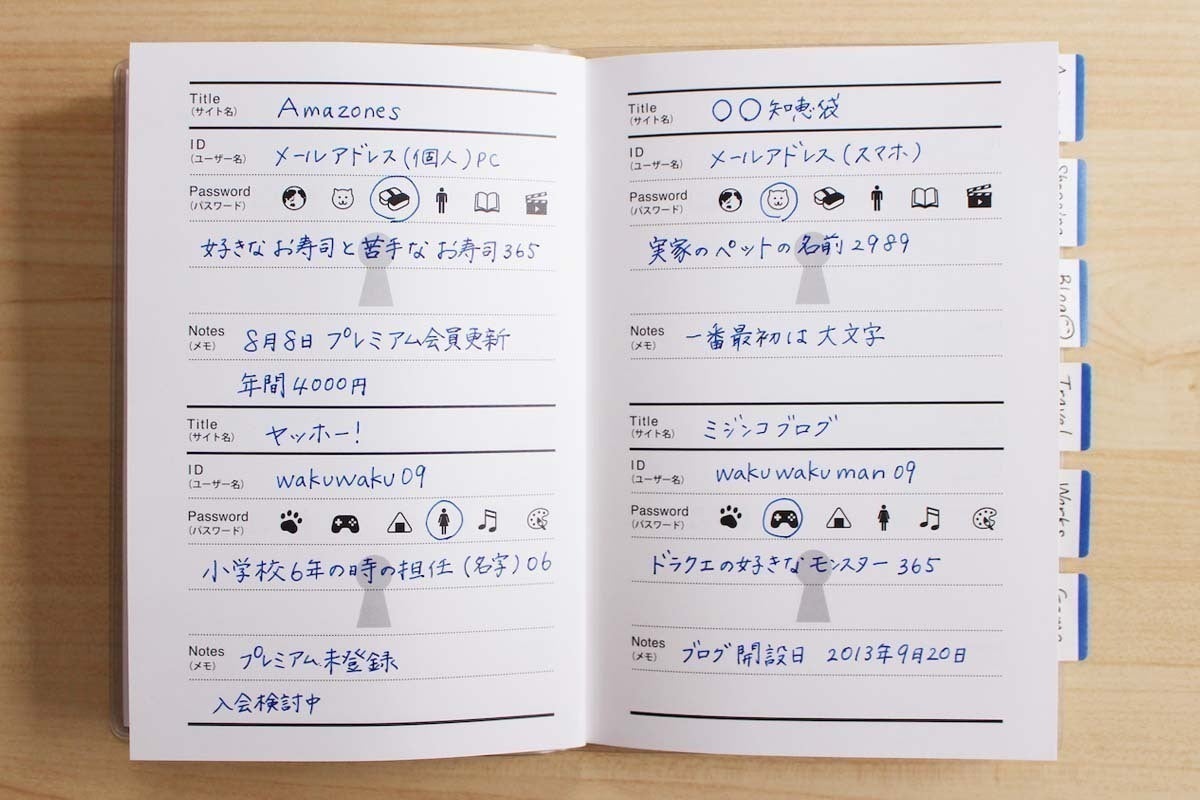 Title
(サイト名)
Amazones
ID
(ユーザー名)
メールアドレス(個人)PC
Password
(パスワード)
好きなお寿司と苦手なお寿司365
Notes
(メモ)
8月8日 プレミアム会員更新
年間4000円
Title
(サイト名)
ヤッホー!
ID
(ユーザー名)
wakuwaku09
Password
(パスワード)
小学校6年の時の担任(名字)06
Notes
(メモ)
プレミアム未登録
入会検討中
Title
(サイト名)
〇〇知恵袋
ID
(ユーザー名)
メールアドレス(スマホ)
Password
(パスワード)
実家のペットの名前2989
Notes
(メモ)
一番最初は大文字
Title
(サイト名)
ミジンコブログ
ID
(ユーザー名)
wakuwakuman09
Password
(パスワード)
ドラクエの好きなモンスター365
Notes
(メモ)
ブログ開設日 2013年9月20日
Shopping
Blog
Travel
Works
Game